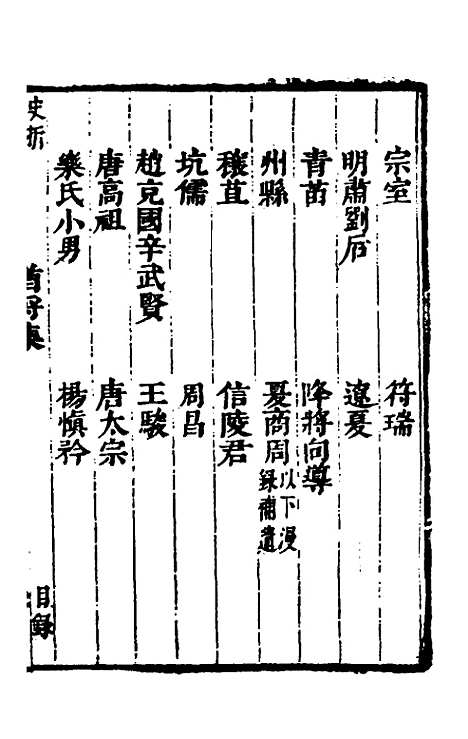 宗室 符瑞
明肅劉后 遼夏
青苗 降將向導
州縣 夏商周以下漫錄補遺
穰苴 信陵君
坑儒 周昌
趙充國辛武賢 王駿
唐高祖 唐太宗
欒氏小男 楊慎矜
史折 目錄